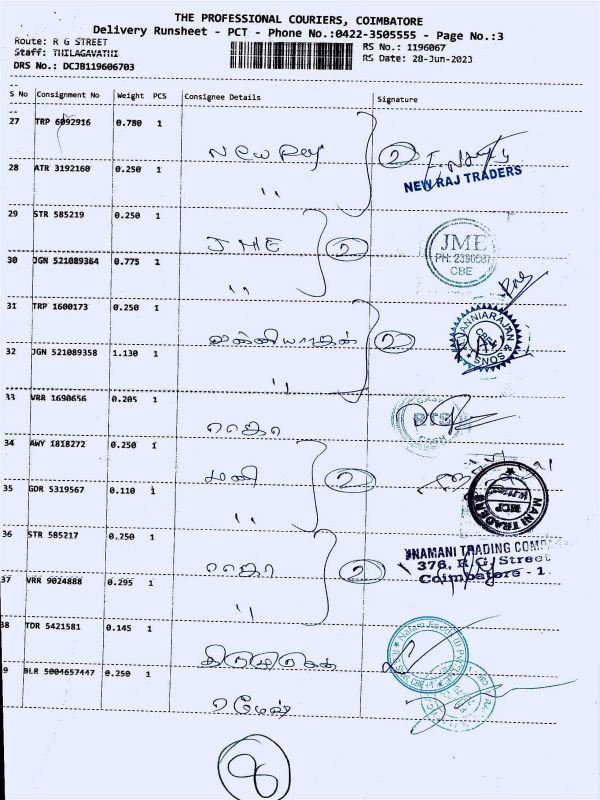 THE PROFESSIONAL COURIERS, COIMBATORE
Delivery Runsheet - PCT - Phone No.:0422-3505555 - Page No.:3
Route: R G STREET
Staff: THILAGAVATHI
DRS No.: DCJB119606703
RS No.: 1196067
RS Date: 28-Jun-2023
S No Consignment No Weight PCS Consignee Details Signature
27 TRP 6092916 0.780 1
New Raj 2
NEW RAJ TRADERS
28 ATR 3192160 0.250 1
"
29 STR 585219 0.250 1
JME 2
JME
PH: 2390687
CBE
30 JGN 521089364 0.775 1
"
31 TRP 1600173 0.250 1
2
32 JGN 521089358 1.130 1
"
33 VRR 1690656 0.205 1
34 AWY 1818272 0.250 1
மணி 2
35 GDR 5319567 0.110 1
"
MANI TRADERS
36 STR 585217 0.250 1
2
UNAMANI TRADING COMPA
376, R.G. Street
Coimbatore - 1.
37 VRR 9024888 0.295 1
"
38 TDR 5421581 0.145 1
39 BLR 5004657447 0.250 1
ரமேஷ்
8